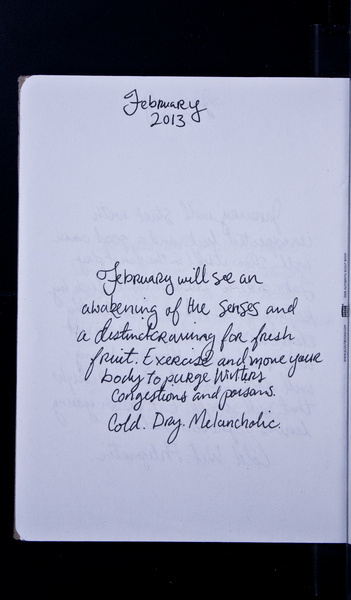 February
2013
February will see an
awakening of the senses and
a distinct craving for fresh
fruit. Exercise and move your
body to purge Winters
congestions and poisons.
Cold. Dry. Melancholic.